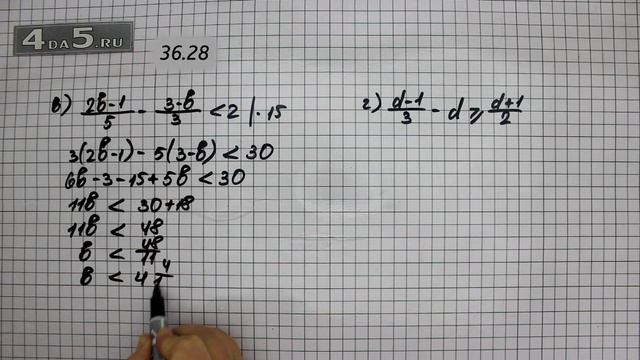 4DA5.RU
36.28
в) (2в-1)/5 - (3-в)/3 < 2 |·15
3(2в-1) - 5(3-в) < 30
6в-3-15+5в < 30
11в < 30+18
11в < 48
в < 48/11
в < 4 4/1
г) (d-1)/3 - d ⩾ (d+1)/2